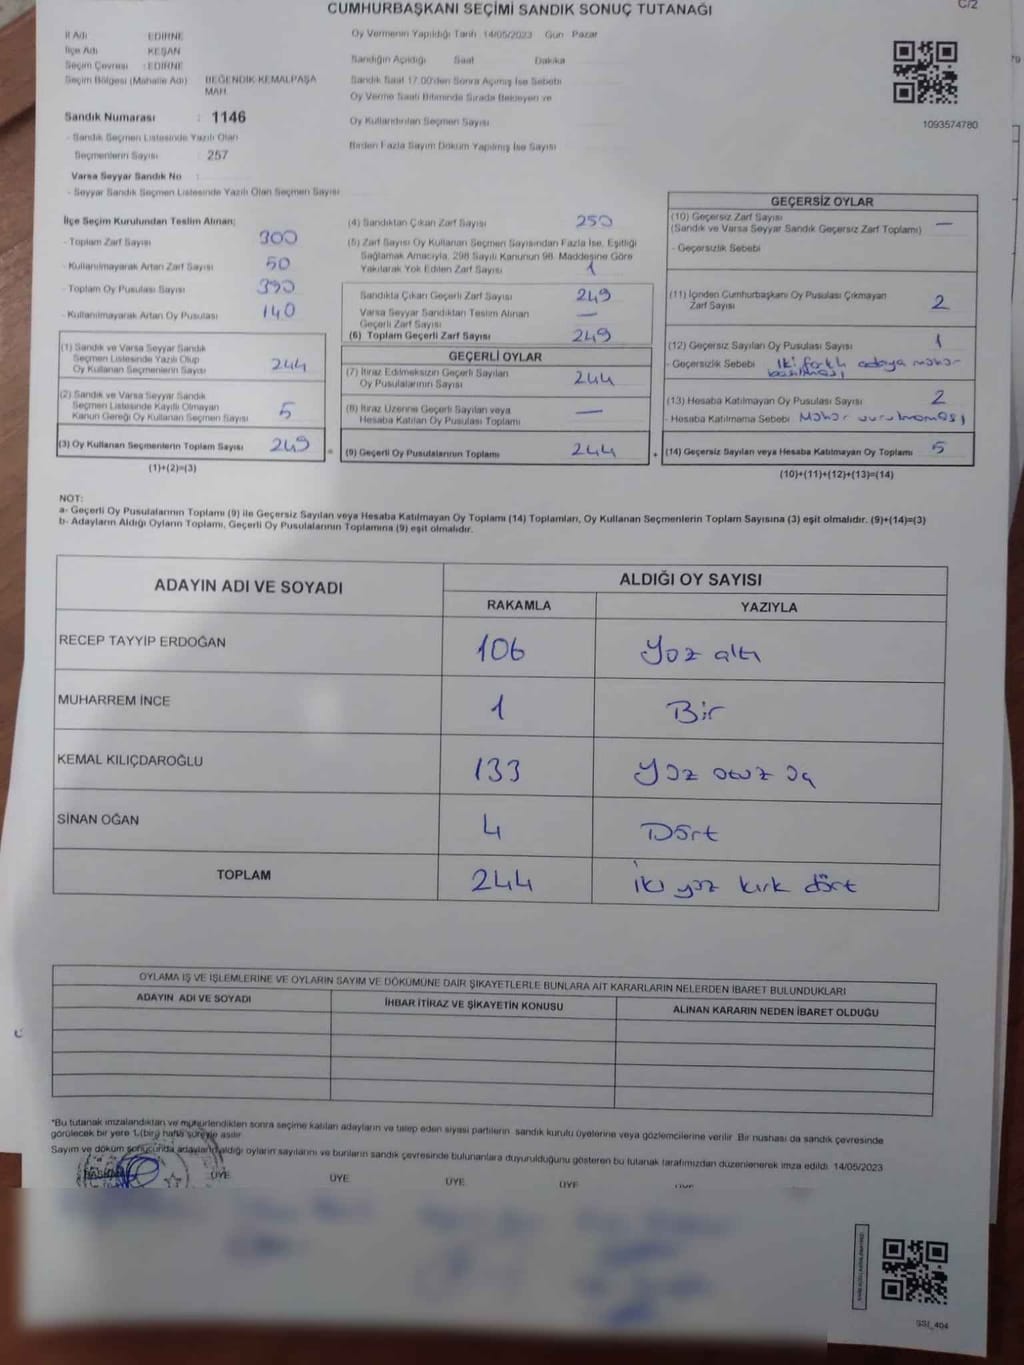 CUMHURBAŞKANI SEÇİMİ SANDIK SONUÇ TUTANAĞI
C/2
İl Adı EDİRNE
İlçe Adı KEŞAN
Seçim Çevresi : EDİRNE
Seçim Bölgesi (Mahalle Adı) BEĞENDİK-KEMALPAŞA MAH.
Sandık Numarası : 1146
- Sandık Seçmen Listesinde Yazılı Olan
Seçmenlerin Sayısı : 257
Varsa Seyyar Sandık No :
- Seyyar Sandık Seçmen Listesinde Yazılı Olan Seçmen Sayısı
Oy Vermenin Yapıldığı Tarih 14/05/2023 Gün Pazar
Sandığın Açıldığı Saat Dakika
Sandık Saat 17.00'den Sonra Açılmış İse Sebebi
Oy Verme Saati Bitiminde Sırada Bekleyen ve
Oy Kullandırılan Seçmen Sayısı
Birden Fazla Sayım Döküm Yapılmış İse Sayısı
1093574780
İlçe Seçim Kurulundan Teslim Alınan;
- Toplam Zarf Sayısı 300
- Kullanılmayarak Artan Zarf Sayısı 50
- Toplam Oy Pusulası Sayısı 390
- Kullanılmayarak Artan Oy Pusulası 140
(1) Sandık ve Varsa Seyyar Sandık
Seçmen Listesinde Yazılı Olup
Oy Kullanan Seçmenlerin Sayısı 244
(2) Sandık ve Varsa Seyyar Sandık
Seçmen Listesinde Kayıtlı Olmayan
Kanun Gereği Oy Kullanan Seçmen Sayısı 5
(3) Oy Kullanan Seçmenlerin Toplam Sayısı 249 =
(1)+(2)=(3)
(4) Sandıktan Çıkan Zarf Sayısı 250
(5) Zarf Sayısı Oy Kullanan Seçmen Sayısından Fazla İse, Eşitliği
Sağlamak Amacıyla, 298 Sayılı Kanunun 98. Maddesine Göre
Yakılarak Yok Edilen Zarf Sayısı 1
Sandıkta Çıkan Geçerli Zarf Sayısı 249
Varsa Seyyar Sandıktan Teslim Alınan
Geçerli Zarf Sayısı —
(6) Toplam Geçerli Zarf Sayısı 249
GEÇERLİ OYLAR
(7) İtiraz Edilmeksizin Geçerli Sayılan
Oy Pusulalarının Sayısı 244
(8) İtiraz Üzerine Geçerli Sayılan veya
Hesaba Katılan Oy Pusulası Toplamı —
(9) Geçerli Oy Pusulalarının Toplamı 244 +
GEÇERSİZ OYLAR
(10) Geçersiz Zarf Sayısı
(Sandık ve Varsa Seyyar Sandık Geçersiz Zarf Toplamı) —
- Geçersizlik Sebebi
(11) İçinden Cumhurbaşkanı Oy Pusulası Çıkmayan
Zarf Sayısı 2
(12) Geçersiz Sayılan Oy Pusulası Sayısı 1
- Geçersizlik Sebebi İki farklı adaya mühür
basılması
(13) Hesaba Katılmayan Oy Pusulası Sayısı 2
- Hesaba Katılmama Sebebi Mühür vurulmaması
(14) Geçersiz Sayılan veya Hesaba Katılmayan Oy Toplamı 5
(10)+(11)+(12)+(13)=(14)
NOT:
a- Geçerli Oy Pusulalarının Toplamı (9) ile Geçersiz Sayılan veya Hesaba Katılmayan Oy Toplamı (14) Toplamları, Oy Kullanan Seçmenlerin Toplam Sayısına (3) eşit olmalıdır. (9)+(14)=(3)
b- Adayların Aldığı Oyların Toplamı, Geçerli Oy Pusulalarının Toplamına (9) eşit olmalıdır.
ADAYIN ADI VE SOYADI ALDIĞI OY SAYISI
RAKAMLA YAZIYLA
RECEP TAYYİP ERDOĞAN 106 Yüz altı
MUHARREM İNCE 1 Bir
KEMAL KILIÇDAROĞLU 133 Yüz otuz üç
SİNAN OĞAN 4 Dört
TOPLAM 244 iki yüz kırk dört
OYLAMA İŞ VE İŞLEMLERİNE VE OYLARIN SAYIM VE DÖKÜMÜNE DAİR ŞİKAYETLERLE BUNLARA AİT KARARLARIN NELERDEN İBARET BULUNDUKLARI
ADAYIN ADI VE SOYADI İHBAR İTİRAZ VE ŞİKAYETİN KONUSU ALINAN KARARIN NEDEN İBARET OLDUĞU
*Bu tutanak imzalandıktan ve mühürlendikten sonra seçime katılan adayların ve talep eden siyasi partilerin sandık kurulu üyelerine veya gözlemcilerine verilir. Bir nushası da sandık çevresinde
görülecek bir yere 1 (bir) hafta süreyle asılır.
Sayım ve döküm sonucunda adayların aldığı oyların sayılarını ve bunların sandık çevresinde bulunanlara duyurulduğunu gösteren bu tutanak tarafımızdan düzenlenerek imza edildi. 14/05/2023
BAŞKAN ÜYE ÜYE ÜYE ÜYE
SSI_404